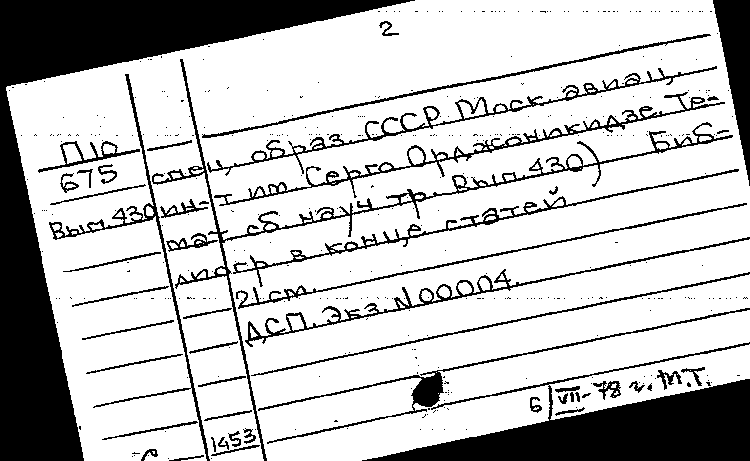 2
П10
675
Вып. 430
спец. образ. СССР Моск. авиац.
ин-т им. Серго Орджоникидзе. Те-
мат сб. науч тр. Вып. 430) Биб-
лиогр в конце статей
21 см.
ДСП. Экз. N 00004.
6/VII-78 г. М.Т.
1453